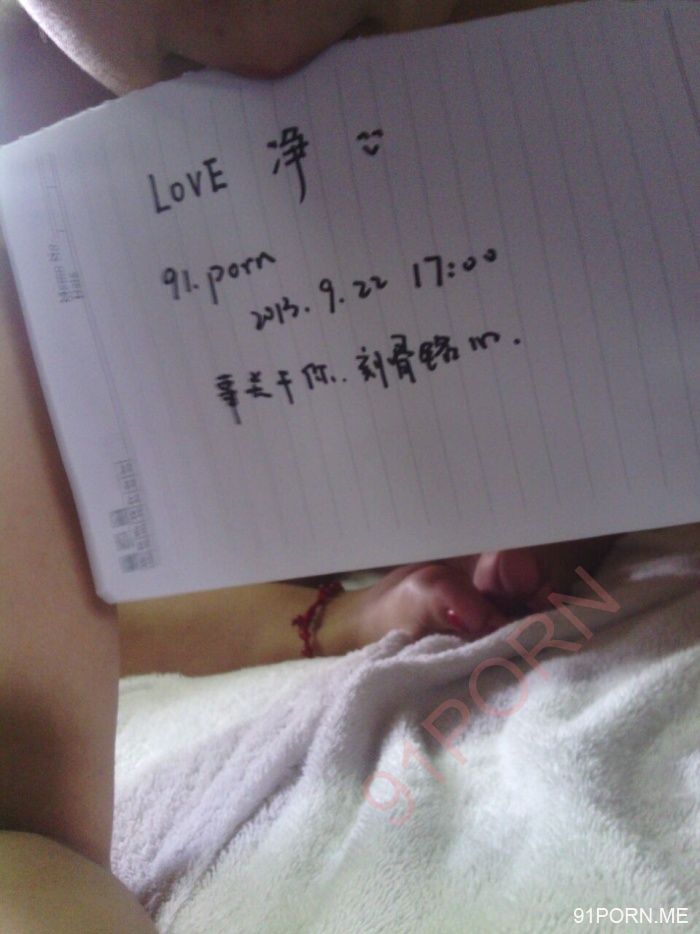 LOVE 净
91.porn
2013.9.22 17:00
事关于你..刻骨铭心.
91PORN
91PORN.ME